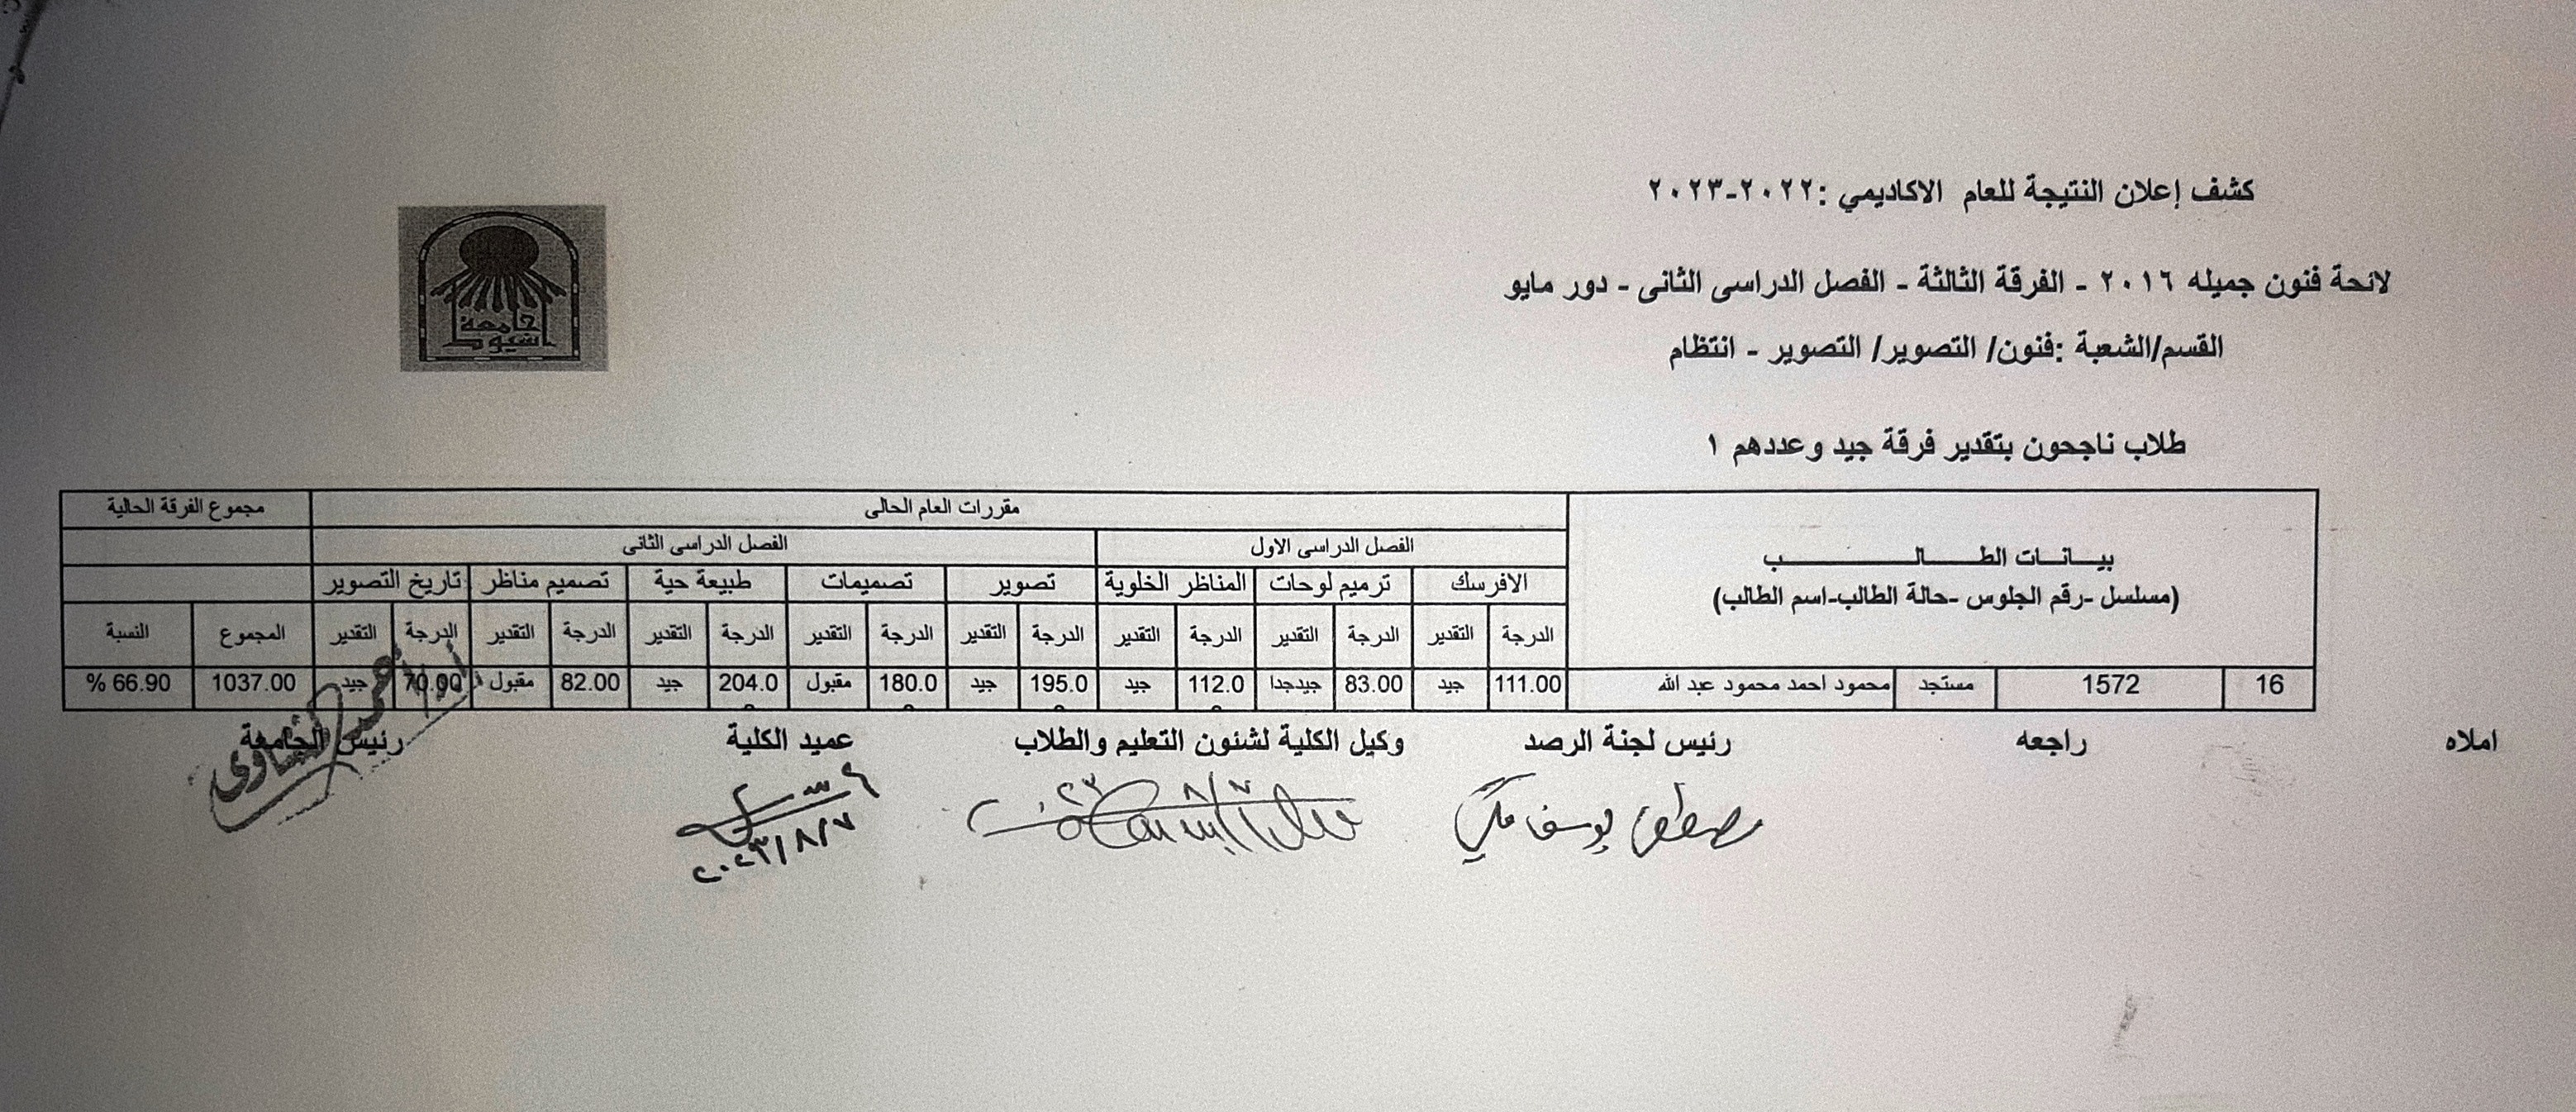 كشف إعلان النتيجة للعام الاكاديمي :٢٠٢٢-٢٠٢٣
جامعة
اسيوط
لائحة فنون جميله ٢٠١٦ - الفرقة الثالثة - الفصل الدراسى الثانى - دور مايو
القسم/الشعبة :فنون/ التصوير/ التصوير - انتظام
طلاب ناجحون بتقدير فرقة جيد وعددهم ١
مقررات العام الحالى مجموع الفرقة الحالية
بيـــانـــات الطـــــالـــــــــب
(مسلسل -رقم الجلوس -حالة الطالب-اسم الطالب)
الفصل الدراسى الاول الفصل الدراسى الثانى
الافرسك ترميم لوحات المناظر الخلوية تصوير تصميمات طبيعة حية تصميم مناظر تاريخ التصوير
الدرجة التقدير الدرجة التقدير الدرجة التقدير الدرجة التقدير الدرجة التقدير الدرجة التقدير الدرجة التقدير الدرجة التقدير المجموع النسبة
16 1572 مستجد محمود احمد محمود عبد الله 111.00 جيد 83.00 جيدجدا 112.0 جيد 195.0 جيد 180.0 مقبول 204.0 جيد 82.00 مقبول 70.00 جيد 1037.00 66.90 %
املاه راجعه رئيس لجنة الرصد وكيل الكلية لشئون التعليم والطلاب عميد الكلية رئيس الجامعة
مصطفى يوسف مكي
أ.د/أحمد المنشاوى
٢٠٢٣/٨/٧